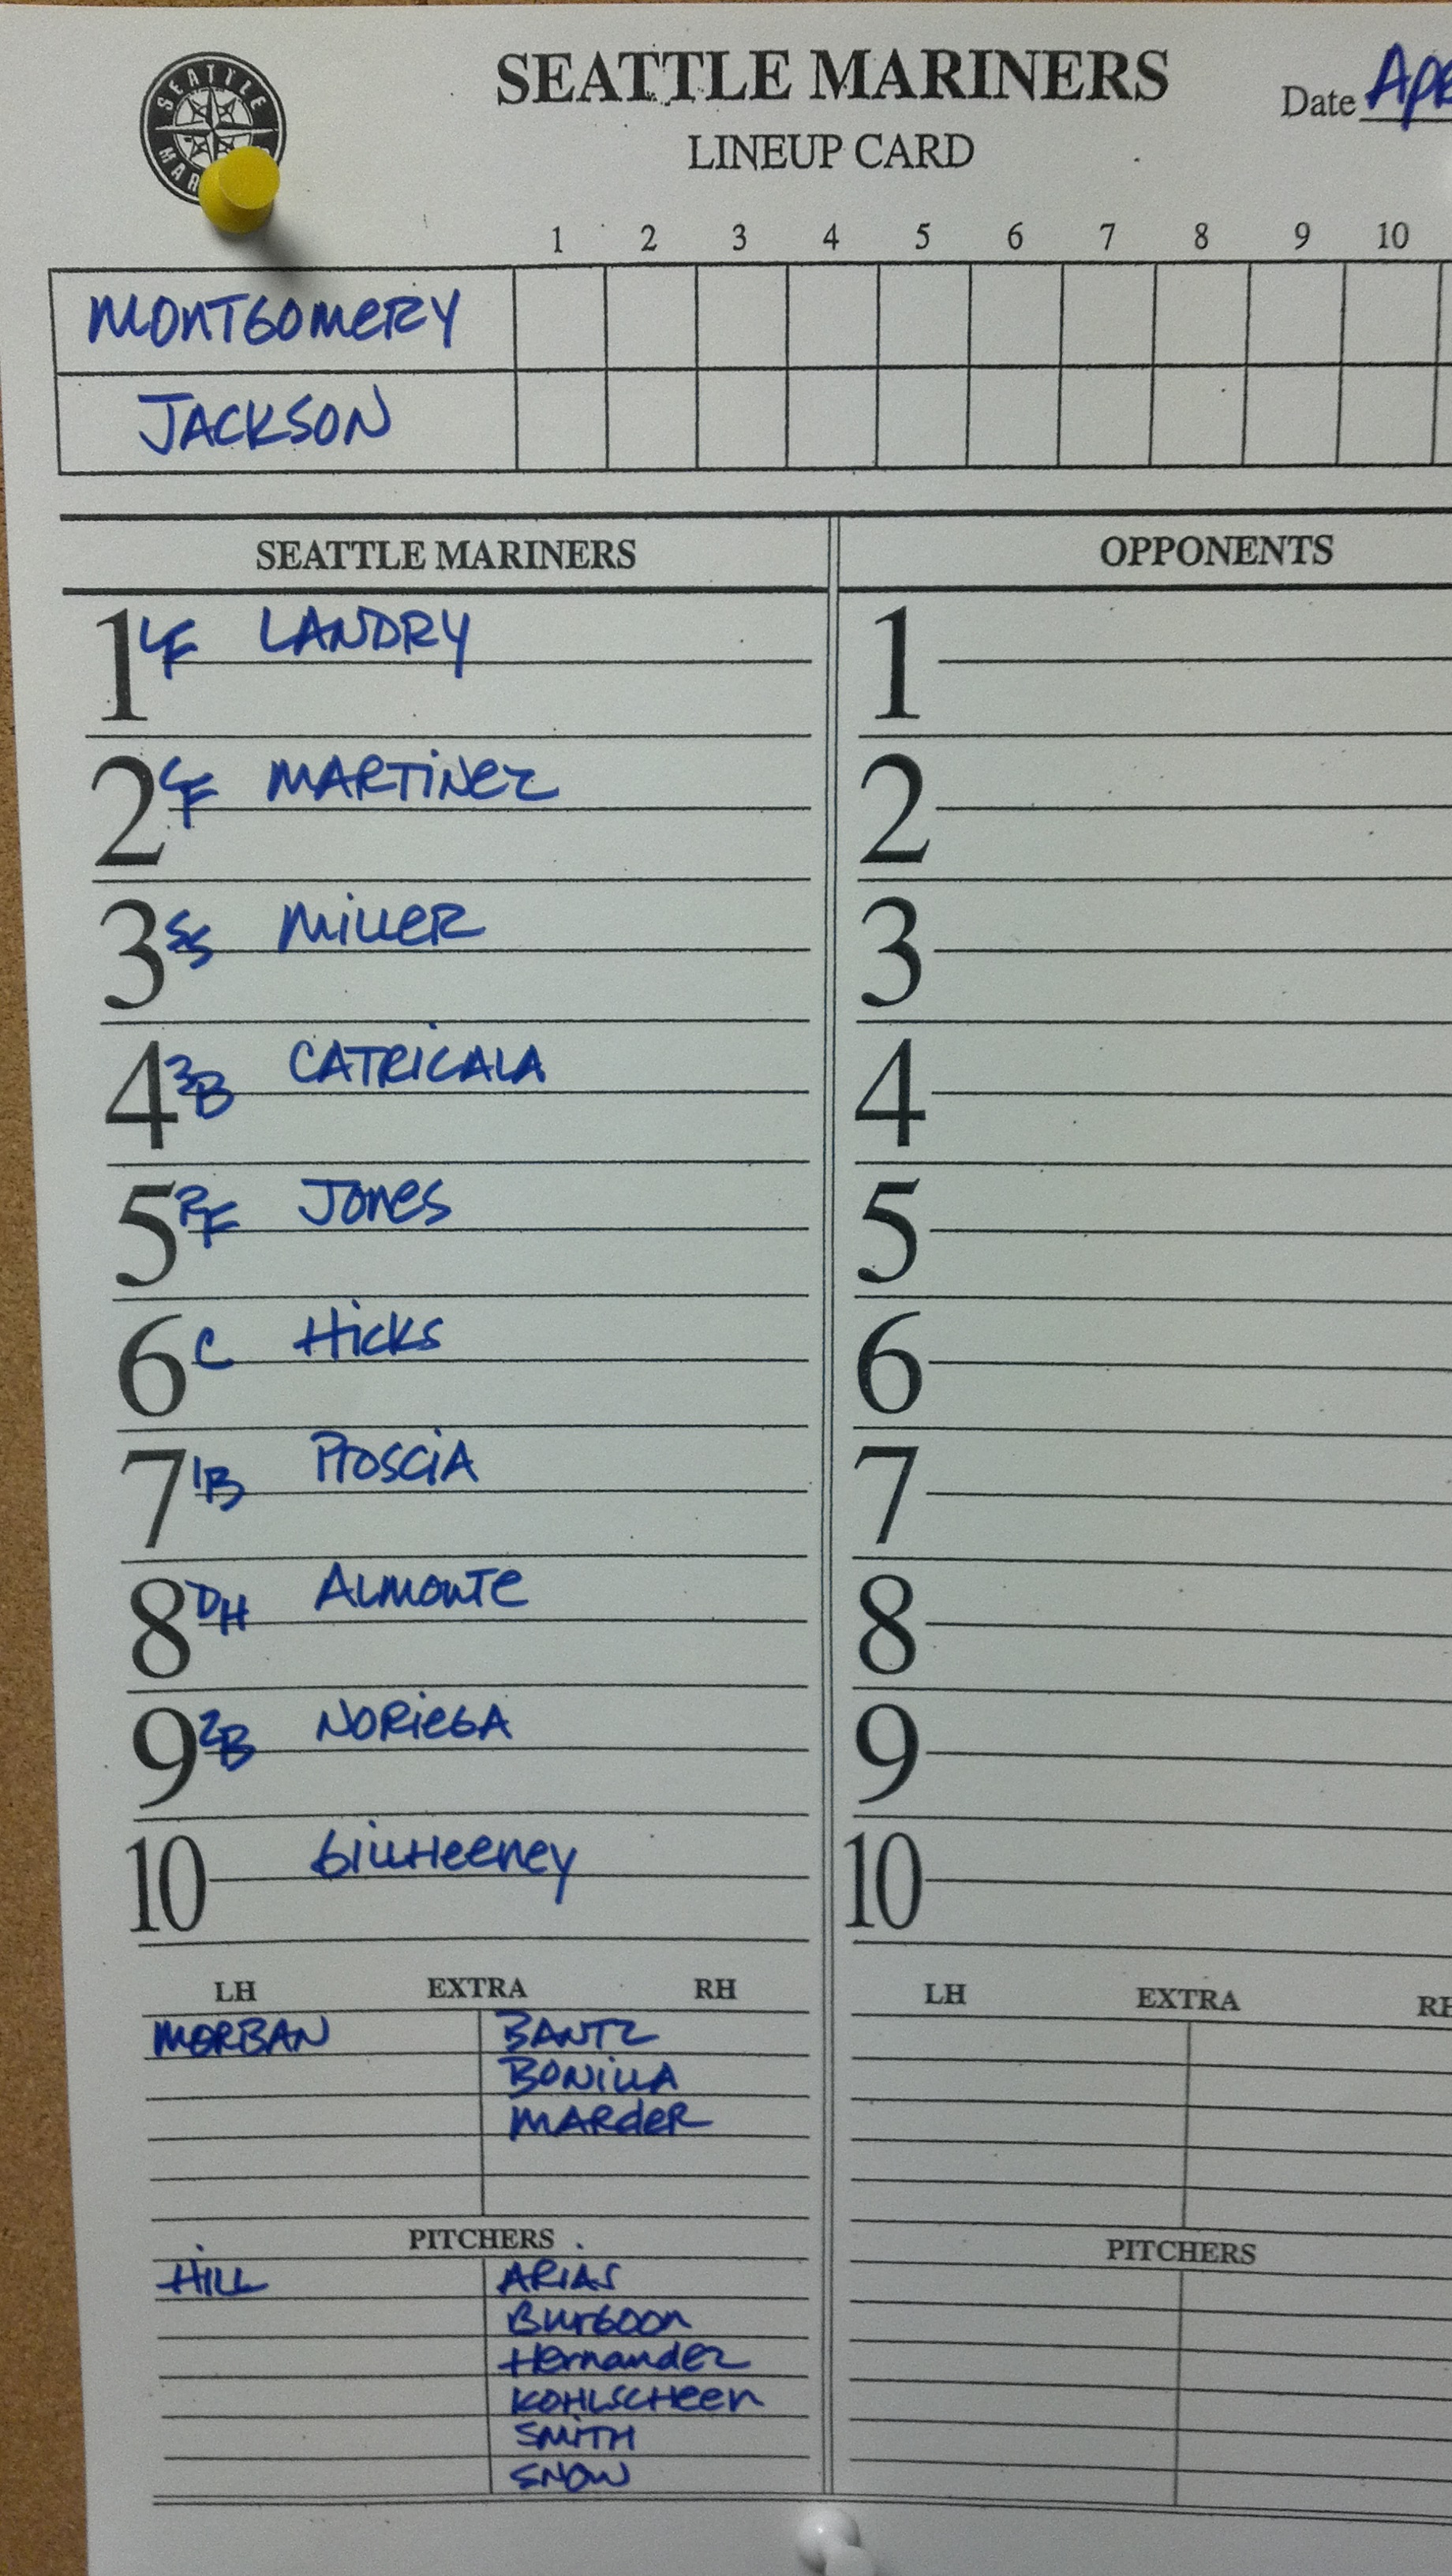 SEATTLE MARINERS
LINEUP CARD
Date
SEATTLE
1 2 3 4 5 6 7 8 9 10
MONTGOMERY
JACKSON
SEATTLE MARINERS OPPONENTS
1 LF LANDRY 1
2 CF MARTINEZ 2
3 SS MILLER 3
4 3B CATRICALA 4
5 RF Jones 5
6 C Hicks 6
7 1B PROSCIA 7
8 DH ALMONTE 8
9 2B NORIEGA 9
10 GILLHEENEY 10
LH EXTRA RH LH EXTRA
MORBAN BANTZ
BONILLA
MARDER
PITCHERS PITCHERS
HILL ARIAS
Burgoon
Hernandez
KOHLSCHEEN
SMITH
SNOW